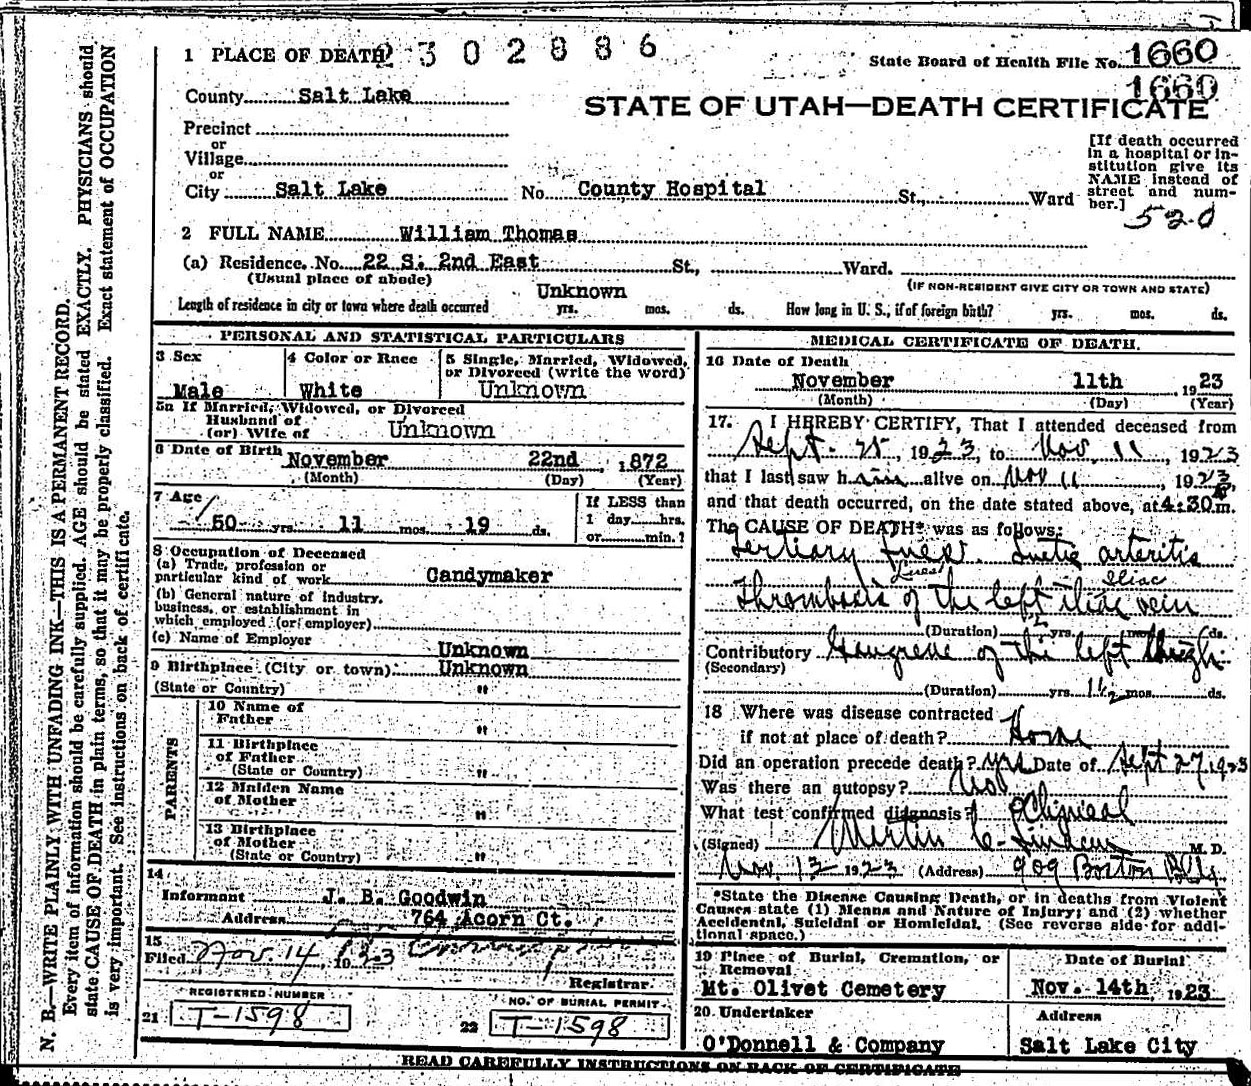 1 PLACE OF DEATH 2302886
State Board of Health File No. 1660
1660
County Salt Lake
STATE OF UTAH—DEATH CERTIFICATE
Precinct
or
Village
or
City Salt Lake No. County Hospital St., Ward
[If death occurred in a hospital or institution give its NAME instead of street and number.]
520
2 FULL NAME William Thomas
(a) Residence. No. 22 S. 2nd East St., Ward.
(Usual place of abode) (IF NON-RESIDENT GIVE CITY OR TOWN AND STATE)
Unknown
Length of residence in city or town where death occurred yrs. mos. ds. How long in U. S., if of foreign birth? yrs. mos. ds.
PERSONAL AND STATISTICAL PARTICULARS
3 Sex 4 Color or Race 5 Single, Married, Widowed,
or Divorced (write the word)
Male White Unknown
5a If Married, Widowed, or Divorced
Husband of
(or) Wife of Unknown
6 Date of Birth November 22nd, 1872
(Month) (Day) (Year)
7 Age If LESS than
50 yrs. 11 mos. 19 ds. 1 day hrs.
or min.?
8 Occupation of Deceased
(a) Trade, profession or
particular kind of work Candymaker
(b) General nature of industry,
business, or establishment in
which employed (or employer)
(c) Name of Employer Unknown
9 Birthplace (City or town) Unknown
(State or Country) "
PARENTS
10 Name of
Father "
11 Birthplace
of Father
(State or Country) "
12 Maiden Name
of Mother "
13 Birthplace
of Mother
(State or Country) "
14
Informant J. B. Goodwin
Address 764 Acorn Ct.
15
Filed Nov. 14, 1923
Registrar.
REGISTERED NUMBER NO. OF BURIAL PERMIT
21 T-1598 22 T-1598
MEDICAL CERTIFICATE OF DEATH.
16 Date of Death
November 11th 1923
(Month) (Day) (Year)
17. I HEREBY CERTIFY, That I attended deceased from
Sept. 25, 1923, to Nov. 11, 1923
that I last saw him alive on Nov 11, 1923,
and that death occurred, on the date stated above, at 4:30 m.
The CAUSE OF DEATH* was as follows:
Tertiary Lues. Luetic arteritis
Lues Iliac
Thrombosis of the left iliac vein
(Duration) yrs. mos. ds.
Contributory Gangrene of the left thigh
(Secondary)
(Duration) yrs. 1 1/2 mos. ds.
18 Where was disease contracted
if not at place of death? Home
Did an operation precede death? yes Date of Sept 27, 1923
Was there an autopsy? No
What test confirmed diagnosis? Clinical
(Signed) M. D.
Nov. 13 1923 (Address) 909 Boston Bldg
*State the Disease Causing Death, or in deaths from Violent
Causes state (1) Means and Nature of Injury; and (2) whether
Accidental, Suicidal or Homicidal. (See reverse side for addi-
tional space.)
19 Place of Burial, Cremation, or Date of Burial
Removal
Mt. Olivet Cemetery Nov. 14th, 1923
20 Undertaker Address
O'Donnell & Company Salt Lake City
READ CAREFULLY INSTRUCTIONS ON BACK OF CERTIFICATE
N. B.—WRITE PLAINLY WITH UNFADING INK—THIS IS A PERMANENT RECORD.
Every item of information should be carefully supplied. AGE should be stated EXACTLY. PHYSICIANS should
state CAUSE OF DEATH in plain terms, so that it may be properly classified. Exact statement of OCCUPATION
is very important. See instructions on back of certificate.